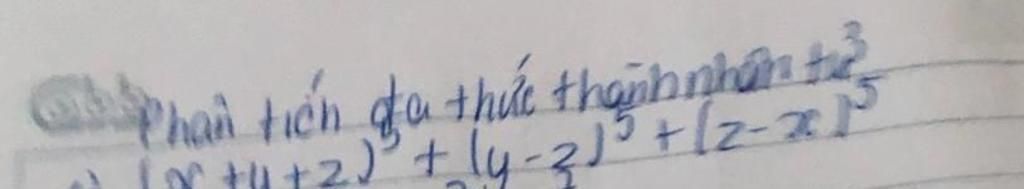 Phân tích đa thức thành nhân tử
(x+y+z)⁵ + (y-z)⁵ + (z-x)⁵